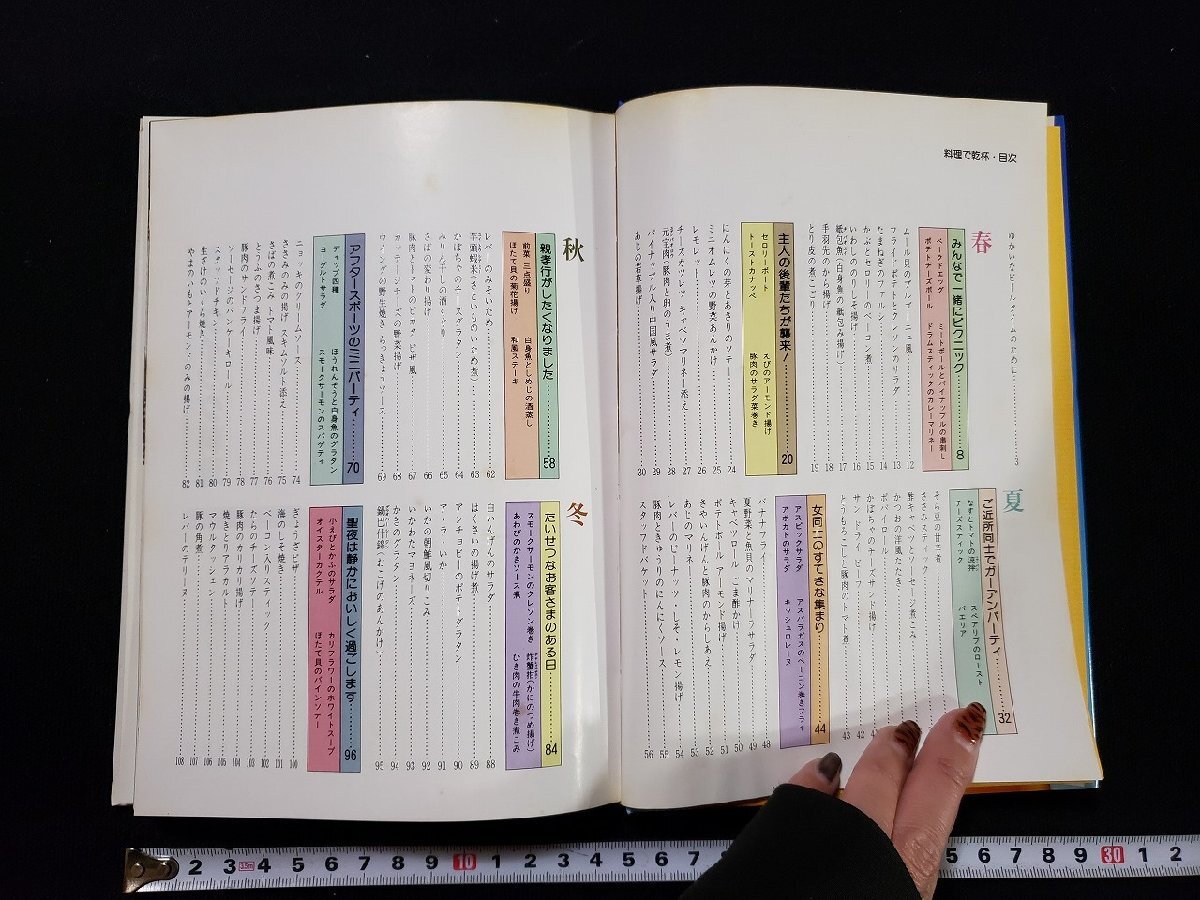 料理で乾杯・目次
春
みんなで一緒にピクニック………8
ベークドエッグ
ポテトナーズボール
ミートボールとパイナップルの串刺し
ドラムスティックのカレーマリネー
フライドポテトとクレソンのサラダ 13
たまねぎのファルシー 14
かぶとセロリーのベーコン煮 15
いわしののりしそ揚げ 16
紙包魚(白身魚の紙包み揚げ) 17
手羽先のから揚げ 18
とり皮の煮こごり 19
主人の後輩たちが襲来!………20
セロリーボート
トーストカナッペ
えびのアーモンド揚げ
豚肉のサラダ菜巻き
にんにくの芽とあさりのソテー 24
ミニオムレツの野菜あんかけ 25
レモレット 26
チーズオムレツ キャベツマリネー添え 27
元宝肉(豚肉と卵のうま煮) 28
パイナップル入り中国風サラダ 29
あじの若草揚げ 30
夏
ご近所同士でガーデンパーティ………32
なすとトマトの涼拌
チーズスティック
スペアリブのロースト
パエリア
そら豆の甘煮
豚キャベツとソーセージ煮こみ
かつおの洋風たたき
ポパイロール
かぼちゃのチーズサンド揚げ
サンドライビーフ
とうもろこしと豚肉のトマト煮 43
女同士のすてきな集まり………44
アスピックサラダ
アボカドのサラダ
アスパラガスのベーコン巻きパティ
キッシュロレーヌ
バナナフライ 48
夏野菜と魚貝のマリナードサラダ 49
キャベツロール ごま酢かけ 50
ポテトボール アーモンド揚げ 51
さやいんげんと豚肉のからしあえ 52
あじのマリネ 53
レバーのピーナッツ・しそ・レモン揚げ 54
豚肉ときゅうりのにんにくソース 55
スタッフドバゲット 56
秋
親孝行がしたくなりました………58
前菜 三点盛り
ほたて貝の菊花揚げ
白身魚としめじの酒蒸し
和風ステーキ
レバーのみそいため 62
芋頭蝦米(さといものいため煮) 63
かぼちゃのムースグラタン 64
みりん干しの酒いり 65
さばの変わり揚げ 66
豚肉とトマトのピカタ ピザ風 67
カッテージチーズの野菜揚げ 68
ラディッシュソース 69
アフタースポーツのミニパーティ………70
ディップ四種
ヨーグルトサラダ
ほうれんそうと白身魚のグラタン
スモークサーモンのスパゲティ
ニョッキのクリームソース 74
ささみのみの揚げ スキムソルト添え 75
さばの煮こみ トマト風味 76
とうふのさつま揚げ 77
豚肉のサンドフライ 78
ソーセージのパンケーキロール 79
スタッフドチキン 80
生ざけのいくら焼き 81
やまのいもとアーモンドのみの揚げ 82
冬
たいせつなお客さまのある日………84
スモークサーモンのクレソン巻き
あわびのかきソース煮
炸蟹拑(かにのつめ揚げ)
ひき肉の牛肉巻き煮こみ
白いんげんのサラダ 88
はくさいの揚げ煮 89
アンチョビーのポテトグラタン 90
ア・ラ・いか 91
いかの朝鮮風切りこみ 92
いかわたマヨネーズ 93
かきのグラタン 94
鍋巴什錦(おこげのあんかけ) 95
聖夜は静かにおいしく過ごします………96
小えびとかぶのサラダ
オイスターカクテル
カリフラワーのホワイトスープ
ほたて貝のパインソテー
ぎょうざピザ 100
海のしそ焼き 101
ベーコン入りスティック 102
たらのチーズソテー 103
豚肉のカリカリ揚げ 104
焼きとりアラカルト 105
マウルタッシェン 106
豚の角煮 107
レバーのテリーヌ 108